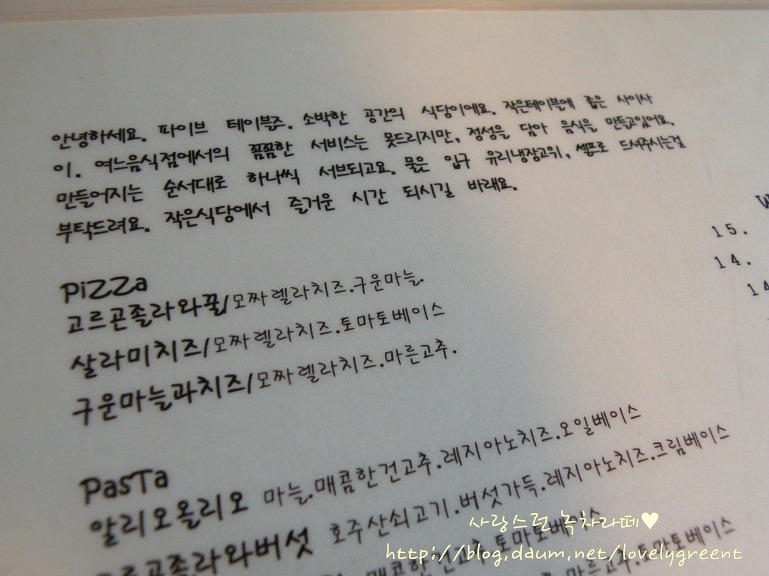 안녕하세요. 파이브 테이블즈. 소박한 공간의 식당이에요. 작은테이블에 좁은 사이사
이. 여느음식점에서의 꼼꼼한 서비스는 못드리지만, 정성을 담아 음식을 만들고있어요.
만들어지는 순서대로 하나씩 서브되고요. 물은 입구 유리냉장고위, 셀프로 드셔주시는걸
부탁드려요. 작은식당에서 즐거운 시간 되시길 바래요.
PiZZa
고르곤졸라와꿀/모짜렐라치즈.구운마늘.
살라미치즈/모짜렐라치즈.토마토베이스
구운마늘과치즈/모짜렐라치즈.마른고추.
15.
14.
14
PasTa
알리오올리오 마늘.매콤한건고추.레지아노치즈.오일베이스
고르곤졸라와버섯 호주산쇠고기.버섯가득.레지아노치즈.크림베이스
매콤한건고추.토마토베이스
마른고추.토마토베이스
사랑스런 녹차라떼♥
http://blog.daum.net/lovelygreent